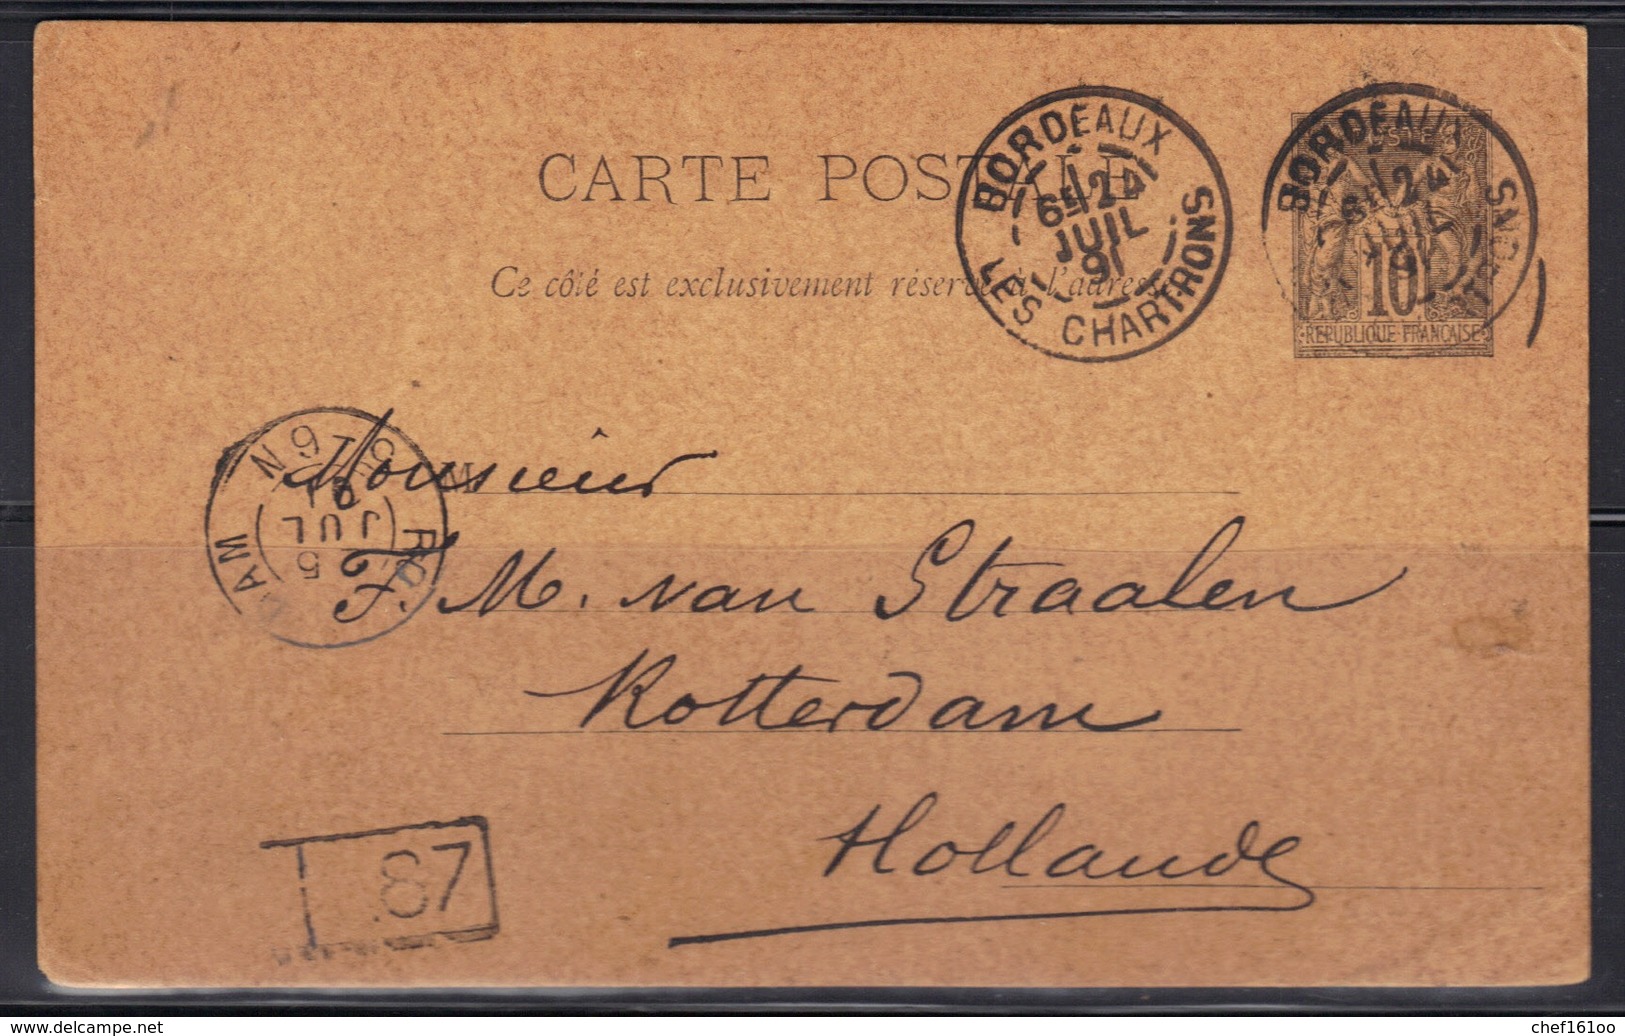 CARTE POSTALE
Ce côté est exclusivement réservé à l'adresse.
BORDEAUX
6E 24
JUIL
91
LES CHARTRONS
BORDEAUX
6E 24
JUIL
91
10
REPUBLIQUE FRANÇAISE
M
Monsieur
F. M. van Straalen
Rotterdam
Hollande
5
JUL
91
87
delcampe.net
chef1600